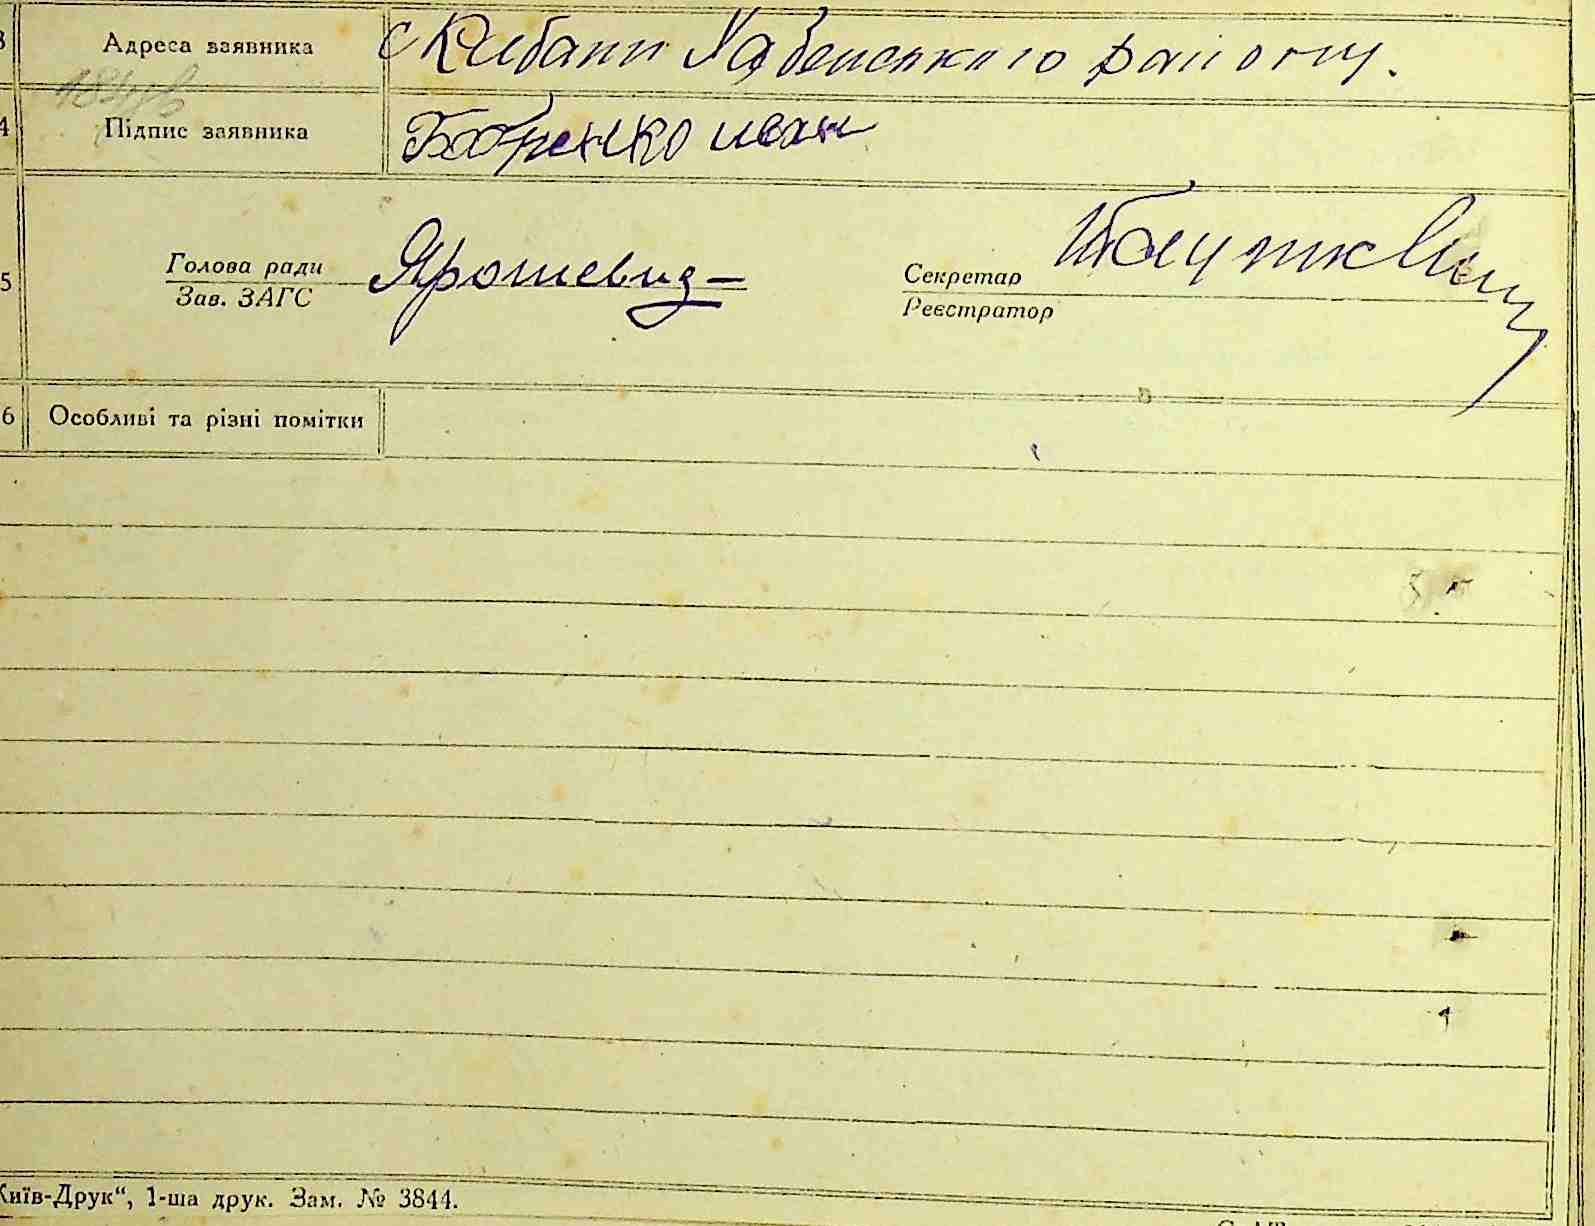 3 Адреса заявника с Кливани Хабенського району.
4 Підпис заявника Бобренко иван
5 Голова ради Ярошевич Секретар
Зав. ЗАГС Реєстратор
6 Особливі та різні помітки
Київ-Друк“, 1-ша друк. Зам. № 3844.